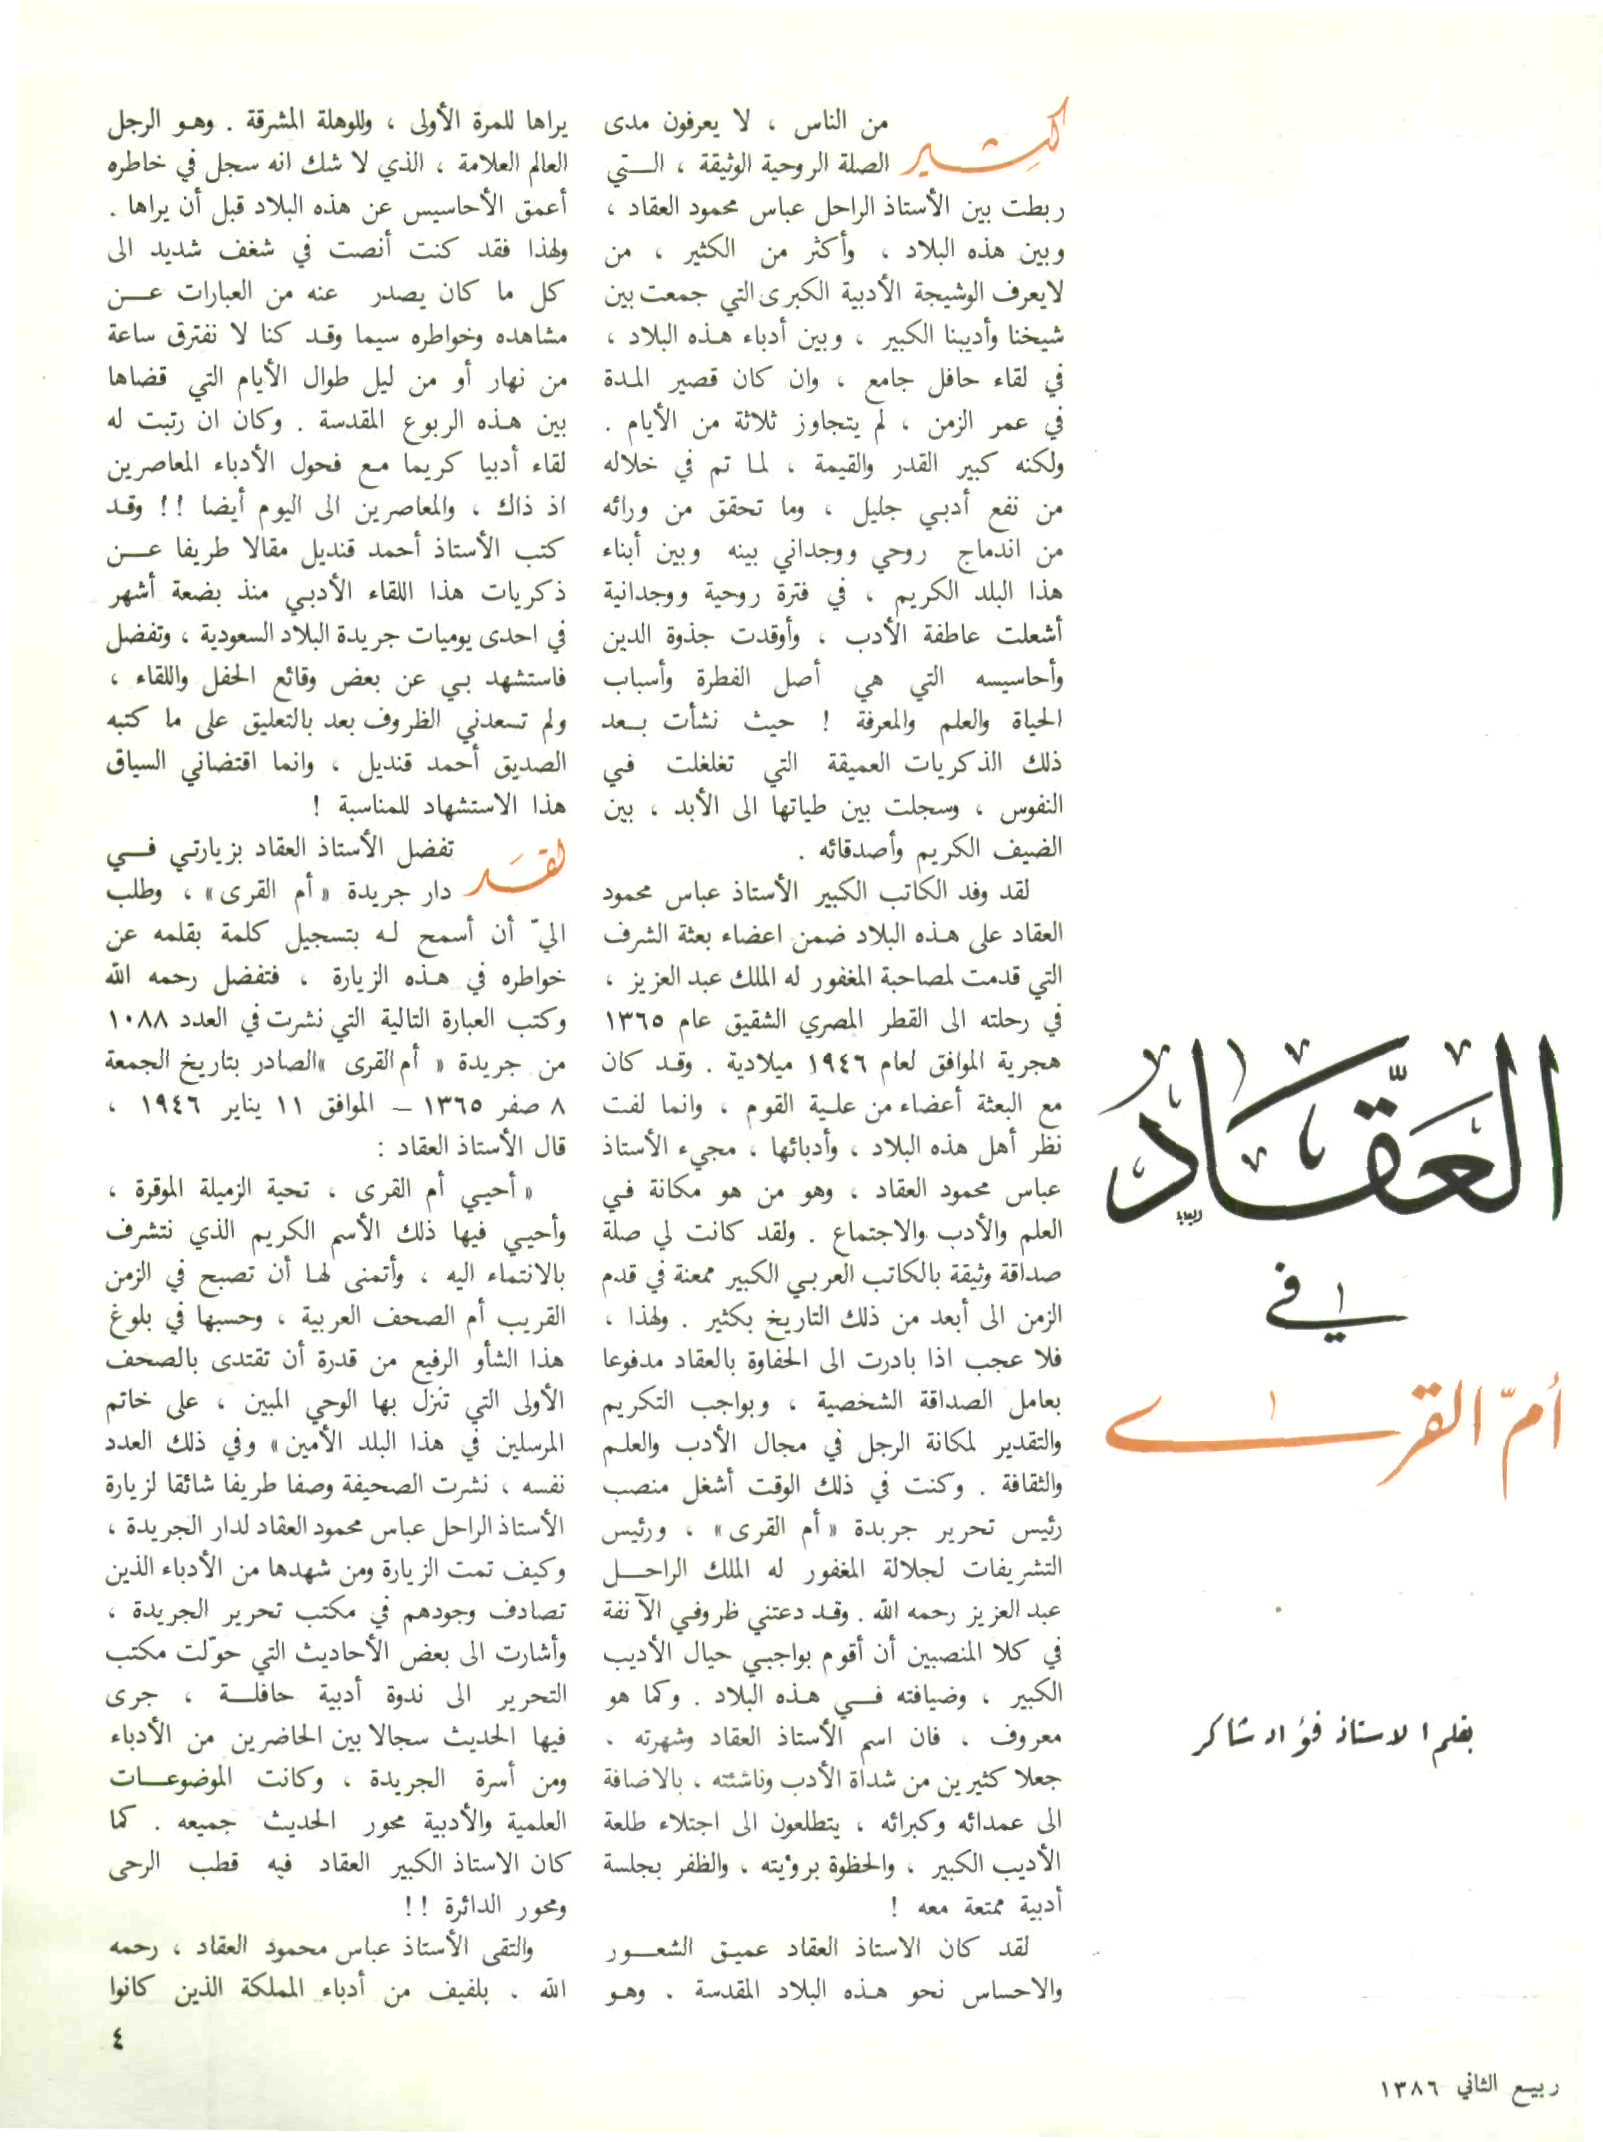 العقَّاد
في
أمّ القرى
بقلم الاستاذ فؤاد شاكر
كثير من الناس ، لا يعرفون مدى
الصلة الروحية الوثيقة ، الـتي
ربطت بين الأستاذ الراحل عباس محمود العقاد ،
وبين هذه البلاد ، وأكثر من الكثير ، من
لايعرف الوشيجة الأدبية الكبرى التي جمعت بين
شيخنا وأديبنا الكبير ، وبين أدباء هـذه البلاد ،
في لقاء حافل جامع ، وان كان قصير المـدة
في عمر الزمن ، لم يتجاوز ثلاثة من الأيام .
ولكنه كبير القدر والقيمة ، لمـا تم في خلاله
من نفع أدبـي جليل ، وما تحقق من ورائه
من اندماج روحي ووجداني بينه وبين أبناء
هذا البلد الكريم ، في فترة روحية ووجدانية
أشعلت عاطفة الأدب ، وأوقدت جذوة الدين
وأحاسيسه التي هي أصل الفطرة وأسباب
الحياة والعلم والمعرفة ! حيث نشأت بـعد
ذلك الذكريات العميقة التي تغلغلت فـي
النفوس ، وسجلت بين طياتها الى الأبد ، بين
الضيف الكريم وأصدقائه .
لقد وفد الكاتب الكبير الأستاذ عباس محمود
العقاد على هـذه البلاد ضمن اعضاء بعثة الشرف
التي قدمت لمصاحبة المغفور له الملك عبد العزيز ،
في رحلته الى القطر المصري الشقيق عام ١٣٦٥
هجرية الموافق لعام ١٩٤٦ ميلادية . وقـد كان
مع البعثة أعضاء من علـية القوم ، وانما لفت
نظر أهل هذه البلاد ، وأدبائها ، مجيء الأستاذ
عباس محمود العقاد ، وهو من هو مكانة فـي
العلم والأدب والاجتماع . ولقد كانت لي صلة
صداقة وثيقة بالكاتب العربـي الكبير ممعنة في قدم
الزمن الى أبعد من ذلك التاريخ بكثير . ولهذا ،
فلا عجب اذا بادرت الى الحفاوة بالعقاد مدفوعا
بعامل الصداقة الشخصية ، وبواجب التكريم
والتقدير لمكانة الرجل في مجال الأدب والعلـم
والثقافة . وكنت في ذلك الوقت أشغل منصب
رئيس تحرير جريدة « أم القرى» ، ورئيس
التشريفات لجلالة المغفور له الملك الراحـل
عبد العزيز رحمه الله . وقـد دعتني ظروفـي الآنفة
في كلا المنصبين أن أقوم بواجبـي حيال الأديب
الكبير ، وضيافته فـي هـذه البلاد . وكما هو
معروف ، فان اسم الأستاذ العقاد وشهرته .
جعلا كثيرين من شداة الأدب وناشئته ، بالاضافة
الى عمدائه وكبرائه ، يتطلعون الى اجتلاء طلعة
الأديب الكبير ، والحظوة برؤيته ، والظفر بجلسة
أدبية ممتعة معه !
لقد كان الاستاذ العقاد عميـق الشعـور
والاحساس نحو هـذه البلاد المقدسة . وهـو
يراها للمرة الأولى ، وللوهلة المشرقة . وهـو الرجل
العالم العلامة ، الذي لا شك انه سجل في خاطره
أعمق الأحاسيس عن هذه البلاد قبل أن يراها .
ولهذا فقد كنت أنصت في شغف شديد الى
كل ما كان يصدر عنه من العبارات عـن
مشاهده وخواطره سيما وقـد كنا لا نفترق ساعة
من نهار أو من ليل طوال الأيام التي قضاها
بين هـذه الربوع المقدسة . وكان ان رتبت له
لقاء أدبيا كريما مـع فحول الأدباء المعاصرين
اذ ذاك ، والمعاصرين الى اليوم أيضا !! وقـد
كتب الأستاذ أحمد قنديل مقالا طريفا عـن
ذكريات هذا اللقاء الأدبـي منذ بضعة أشهر
في احدى يوميات جريدة البلاد السعودية ، وتفضل
فاستشهد بـي عن بعض وقائع الحفل واللقاء ،
ولم تسعدني الظروف بعد بالتعليق على ما كتبه
الصديق أحمد قنديل ، وانما اقتضاني السياق
هذا الاستشهاد للمناسبة !
لقد تفضل الأستاذ العقاد بزيارتـي فـي
دار جريدة « أم القرى» ، وطلب
اليّ أن أسمح لـه بتسجيل كلمة بقلمه عن
خواطره في هـذه الزيارة ، فتفضل رحمه الله
وكتب العبارة التالية التي نشرت في العدد ١٠٨٨
من جريدة « أم القرى »الصادر بتاريخ الجمعة
٨ صفر ١٣٦٥ – الموافق ١١ يناير ١٩٤٦ ،
قال الأستاذ العقاد :
« أحيـي أم القرى ، تحية الزميلة الموقرة ،
وأحيـي فيها ذلك الأسم الكريم الذي نتشرف
بالانتماء اليه ، وأتمنى لهـا أن تصبح في الزمن
القريب أم الصحف العربية ، وحسبها في بلوغ
هذا الشأو الرفيع من قدرة أن تقتدى بالصحف
الأولى التي تنزل بها الوحي المبين ، على خاتم
المرسلين في هـذا البلد الأمين» وفي ذلك العدد
نفسه ، نشرت الصحيفة وصفا طريفا شائقا لزيارة
الأستاذ الراحل عباس محمود العقاد لدار الجريدة ،
وكيف تمت الزيارة ومن شهدها من الأدباء الذين
تصادف وجودهم في مكتب تحرير الجريدة ،
وأشارت الى بعض الأحاديث التي حوّلت مكتب
التحرير الى ندوة أدبية حافلـة ، جرى
فيها الحديث سجالا بين الحاضرين من الأدباء
ومن أسرة الجريدة ، وكانت الموضوعـات
العلمية والأدبية محور الحديث جميعه . كما
كان الاستاذ الكبير العقاد فيه قطب الرحى
ومحور الدائرة !!
والتقى الأستاذ عباس محمود العقاد ، رحمه
الله . بلفيف من أدباء المملكة الذين كانوا
٤
ربيـع الثاني ١٣٨٦